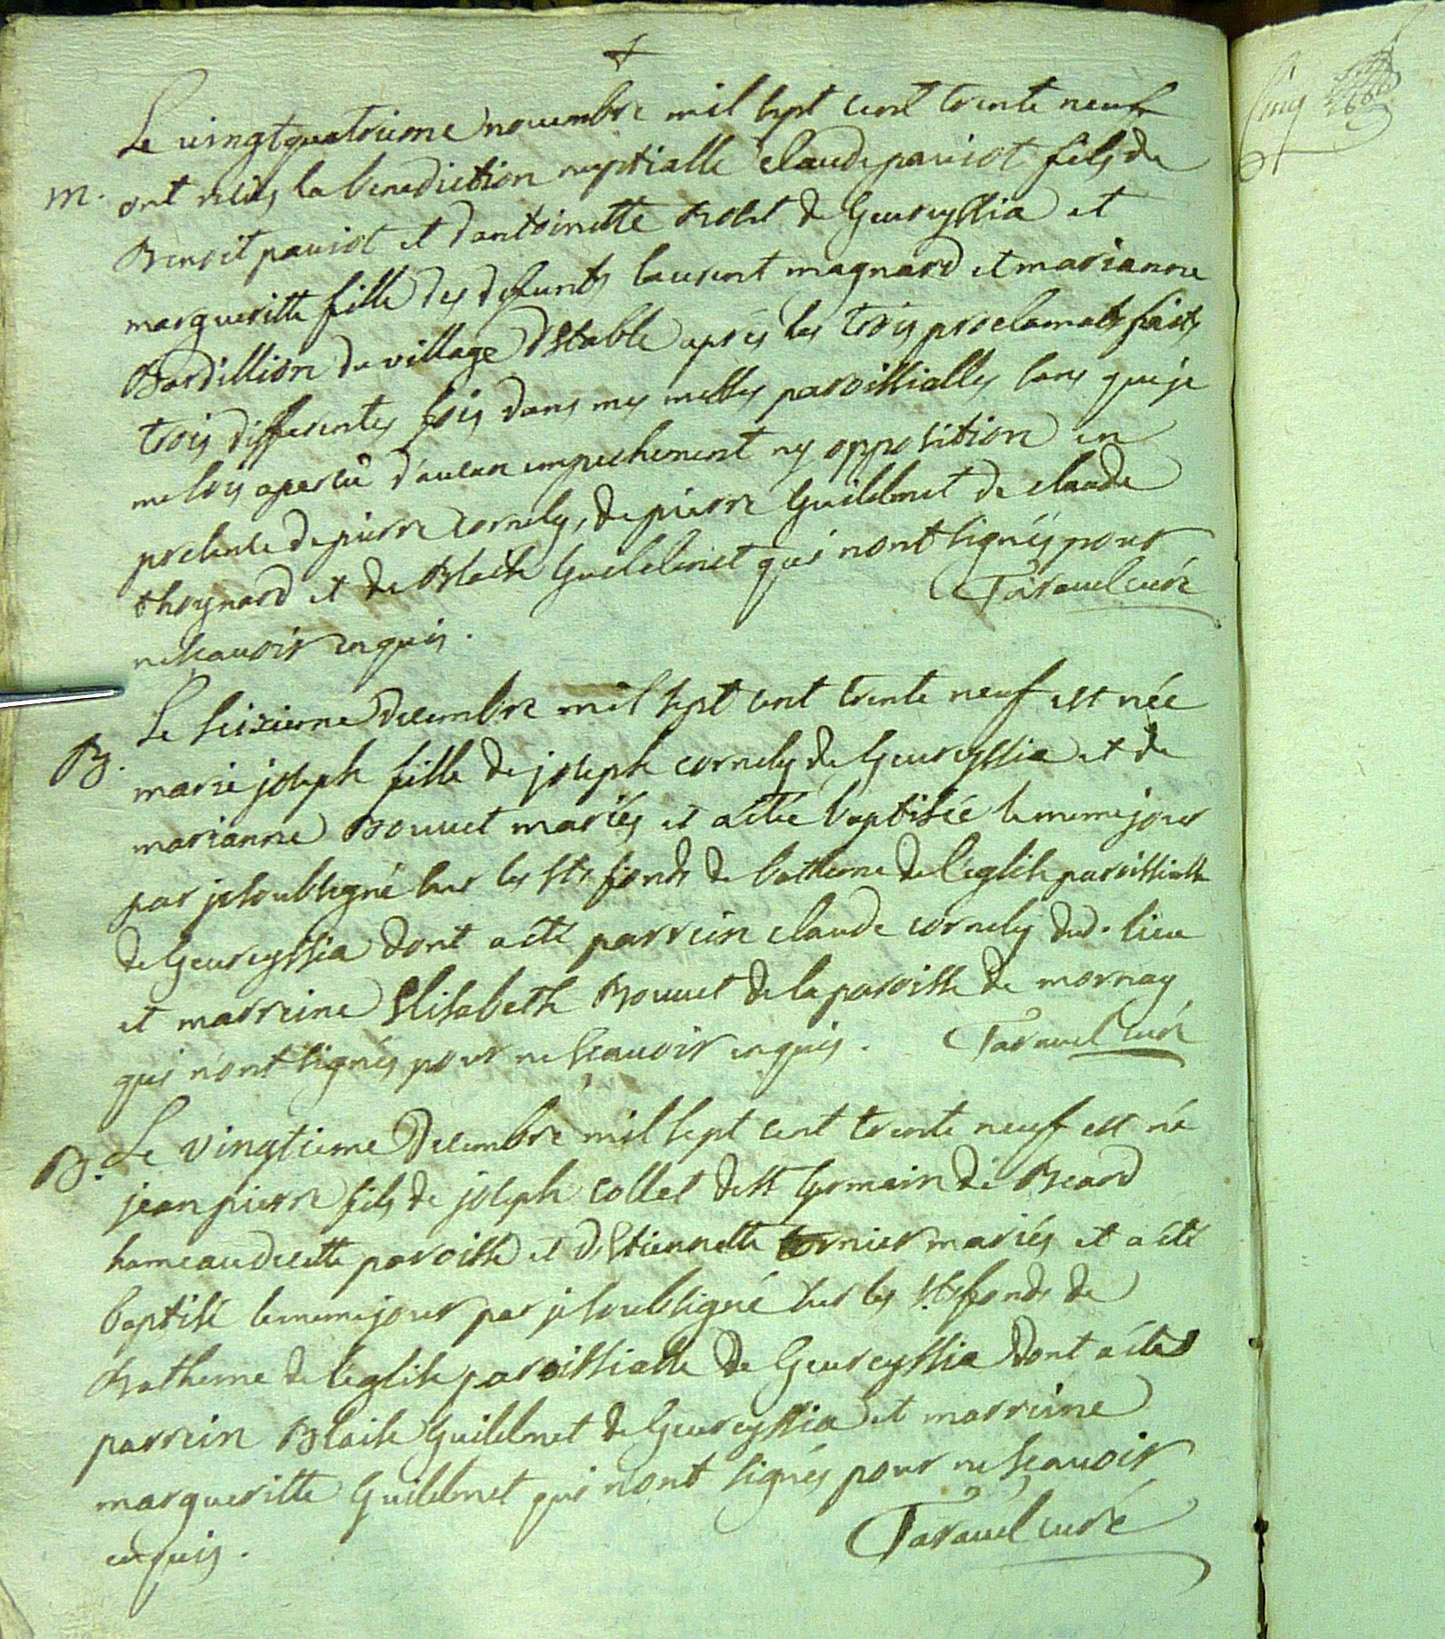 Le vingtquatrieme novembre mil sept cent trente neuf
m. ont reçus la benediction nuptialle claude pauiot fils de
Benoit pauiot et dantoinette Robet de Geureyssia et
margueritte fille des defunts laurent magnard et marianne
Bordillion du village d'stable après les trois proclamats faits
trois differentes fois dans mes messes paroissialles sans que je
me sois apersu d'aucun empechement ny opposition en
presence de pierre cornely, de pierre Guillelmet de claude
thoynard et de Blaise Guillelmet qui n'ont signés pour
ne sçauoir enquis. Tarauel curé
Le seizieme decembre mil sept cent trente neuf est née
B. marie joseph fille de joseph cornely de Geureyssia et de
marianne Bouuet mariés et a été baptisée le meme jour
par je soubsigné sur les sts fonds de batheme de l'eglise paroissialle
de Geureyssia dont a été parrein claude cornely dud. lieu
et marreine Elisabeth Bouuet de la paroisse de mornay
qui n'ont signés pour ne sçauoir enquis. Tarauel curé
B. Le vingtieme decembre mil sept cent trente neuf est né
jean pierre fils de joseph collet de st Germain de Beard
hameau de cette paroisse et d'Estiennette tornier mariés et a été
baptisé le meme jour par je soubsigné sur les sts fonds de
Batheme de l'eglise paroissialle de Geureyssia dont a été
parrein Blaise Guillelmet de Geureyssia et marreine
margueritte Guillelmet qui n'ont signés pour ne sçauoir
enquis. Tarauel curé
Cinq